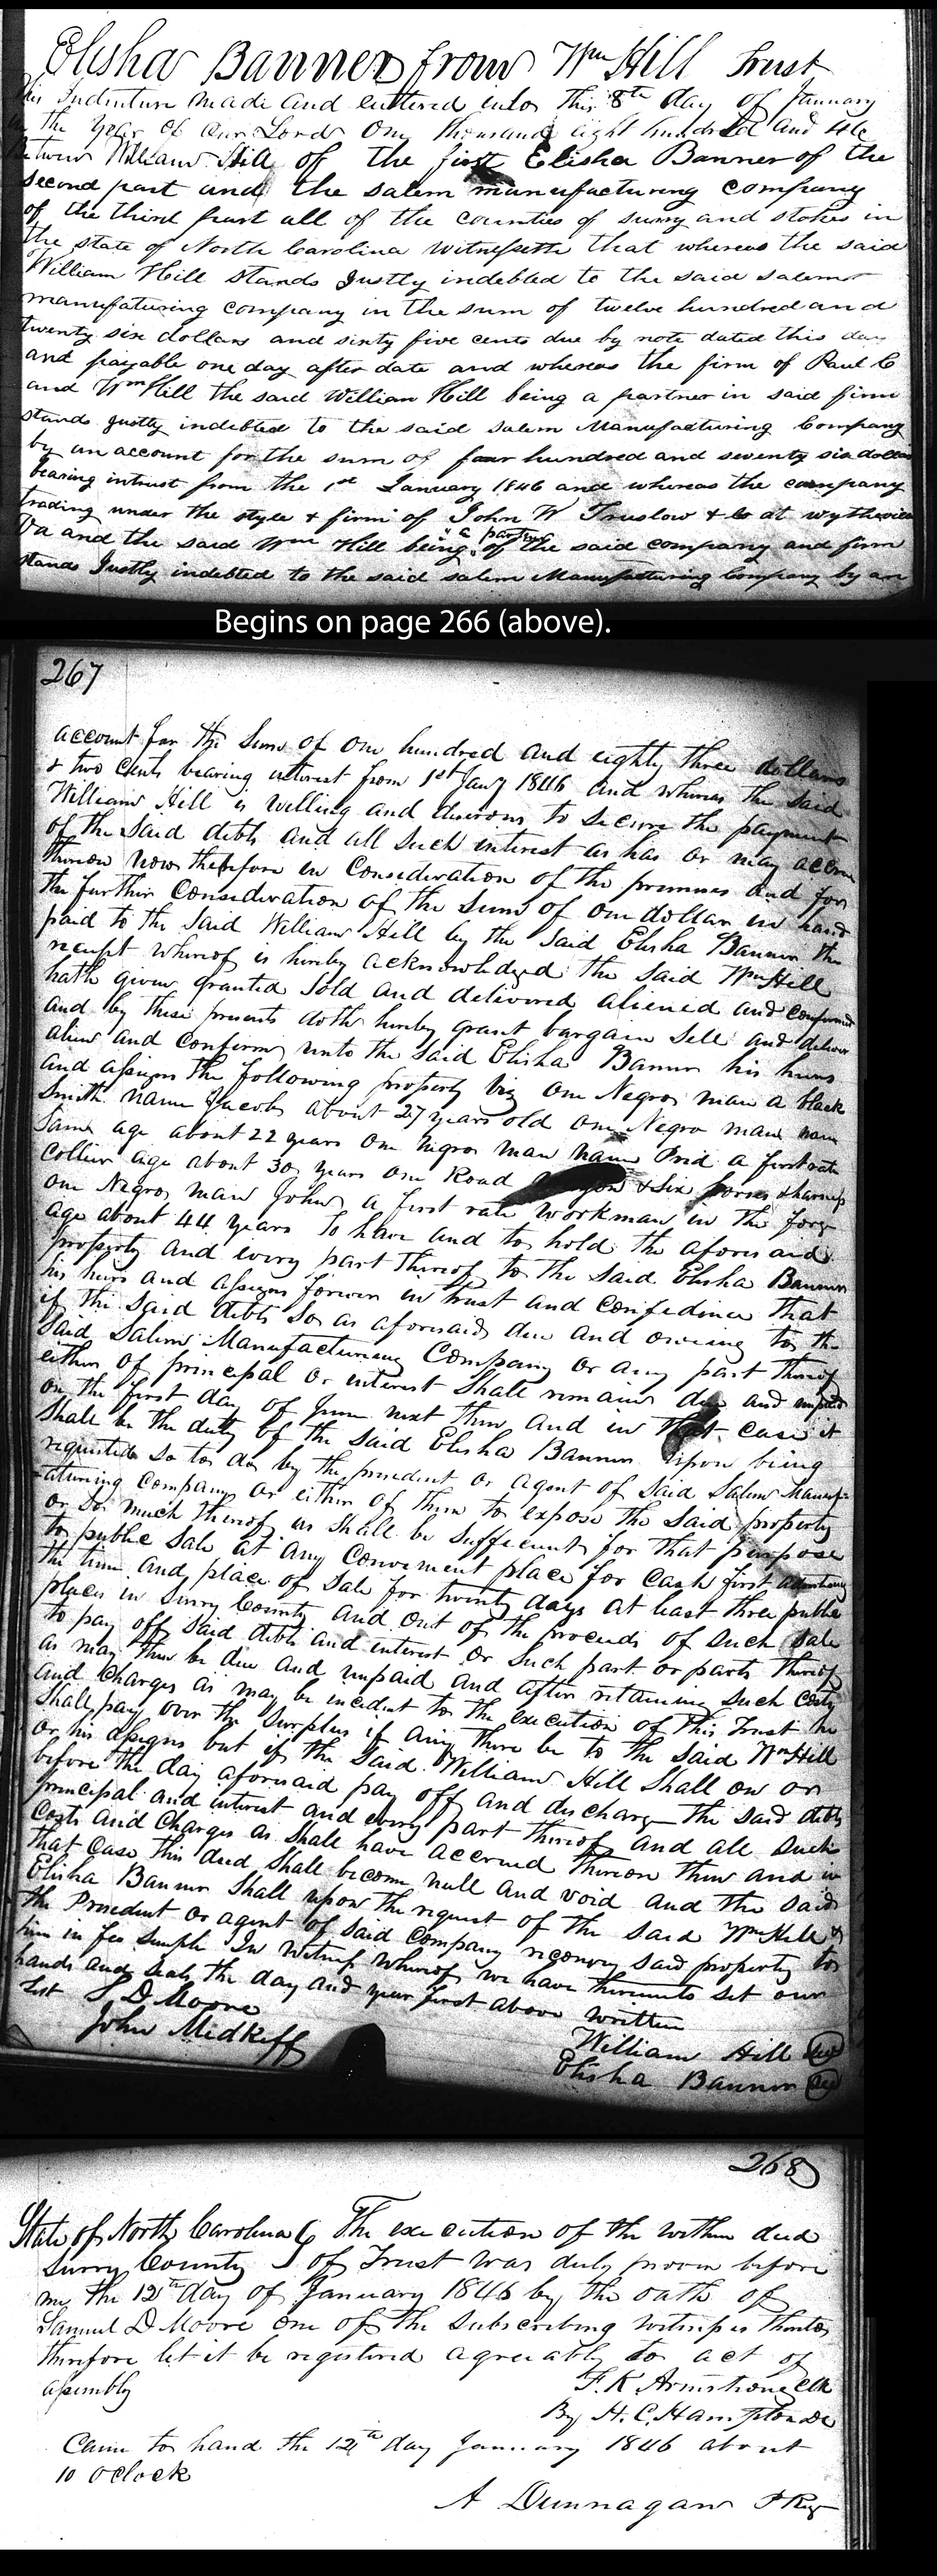 Elisha Banner from Wm Hill Trust
This Indenture made and entered into this 8th day of January
in the year of our Lord One thousand eight hundred and 46
between William Hill of the first Elisha Banner of the
second part and the salem manufacturing company
of the third part all of the counties of surry and stokes in
the state of North Carolina witnesseth that whereas the said
William Hill stands Justly indebted to the said salem
manufaturing company in the sum of twelve hundred and
twenty six dollars and sixty five cents due by note dated this day
and payable one day after date and whereas the firm of Paul C
and Wm Hill the said William Hill being a partner in said firm
stands justly indebted to the said salem Manufacturing Company
by an account for the sum of four hundred and seventy six dollars
bearing intrust from the 1st January 1846 and whereas the company
trading under the style & firm of John W Truslow & Co at wytheville
Va and the said Wm Hill being a partner of the said company and firm
stands Justly indebted to the said salem Manufacturing Company by an
Begins on page 266 (above).
267
account for the Sum of one hundred and eighty three dollars
& two Cents bearing interest from 1st Jany 1846 and whereas the Said
William Hill is willing and desirous to secure the payment
of the Said debts and all such interest as has or may accrue
thereon now therefore in Consideration of the premises and for
the further Consideration of the Sum of one dollar in hand
paid to the Said William Hill by the Said Elisha Banner the
receipt whereof is hereby acknowledged the Said Wm Hill
hath given granted Sold and delivered aliened and confirmed
and by these presents doth hereby grant bargain Sell and deliver
alien and confirm unto the Said Elisha Banner his heirs
and assigns the following property viz one Negro man a black
Smith name Jacob about 27 years old one Negro man nam
Sam age about 22 years one negro man name Prid a first rate
Collier age about 30 years one Road waggon & Six horses & harness
one Negro man John a first rate workman in the forge
age about 44 years To have and to hold the aforesaid
property and every part thereof to the Said Elisha Banner
his heirs and assigns forever in trust and confidence that
if the Said debts So as aforesaid due and oweing to the
Said Salem Manufacturing Company or any part thereof
either of principal or interest Shall remain due and unpaid
on the first day of June next then and in that case it
Shall be the duty of the Said Elisha Banner upon being
requested so to do by the president or agent of Said Salem Manuf-
-aturing Company or either of them to expose the Said property
or so much thereof as shall be sufficient for that purpose
to public Sale at any Convenient place for Cash first advertising
the time and place of Sale for twenty days at least three public
places in Surry County and out of the proceeds of such Sale
to pay off said debts and interest or such part or parts thereof
as may then be due and unpaid and after retaining such Costs
and Charges as may be incident to the execution of this Trust he
Shall pay over the Surplus if any there be to the Said Wm Hill
or his assigns but if the Said William Hill Shall on or
before the day aforesaid pay off and discharge the Said debts
principal and interest and every part thereof and all such
Costs and Charges as Shall have accrued thereon then and in
that Case this deed Shall become null and void and the Said
Elisha Banner Shall upon the request of the Said Wm Hill &
the President or agent of said Company reconvey said property to
him in fee simple In witness whereof we have thereunto set our
hands and Seals the day and year first above written
Test S D Moore
John Midkiff
William Hill Seal
Elisha Banner Seal
268
State of North Carolina The execution of the within deed
Surry County of Trust was duly proven before
me the 12th day of January 1846 by the oath of
Samuel D Moore one of the Subscribing witnesses thereto
therefore let it be registered agreeably to act of
assembly
F. K. Armstrong Clk
By H. C. Hampton DC
Came to hand the 12th day January 1846 about
10 Oclock
A Dunnagan P Reg